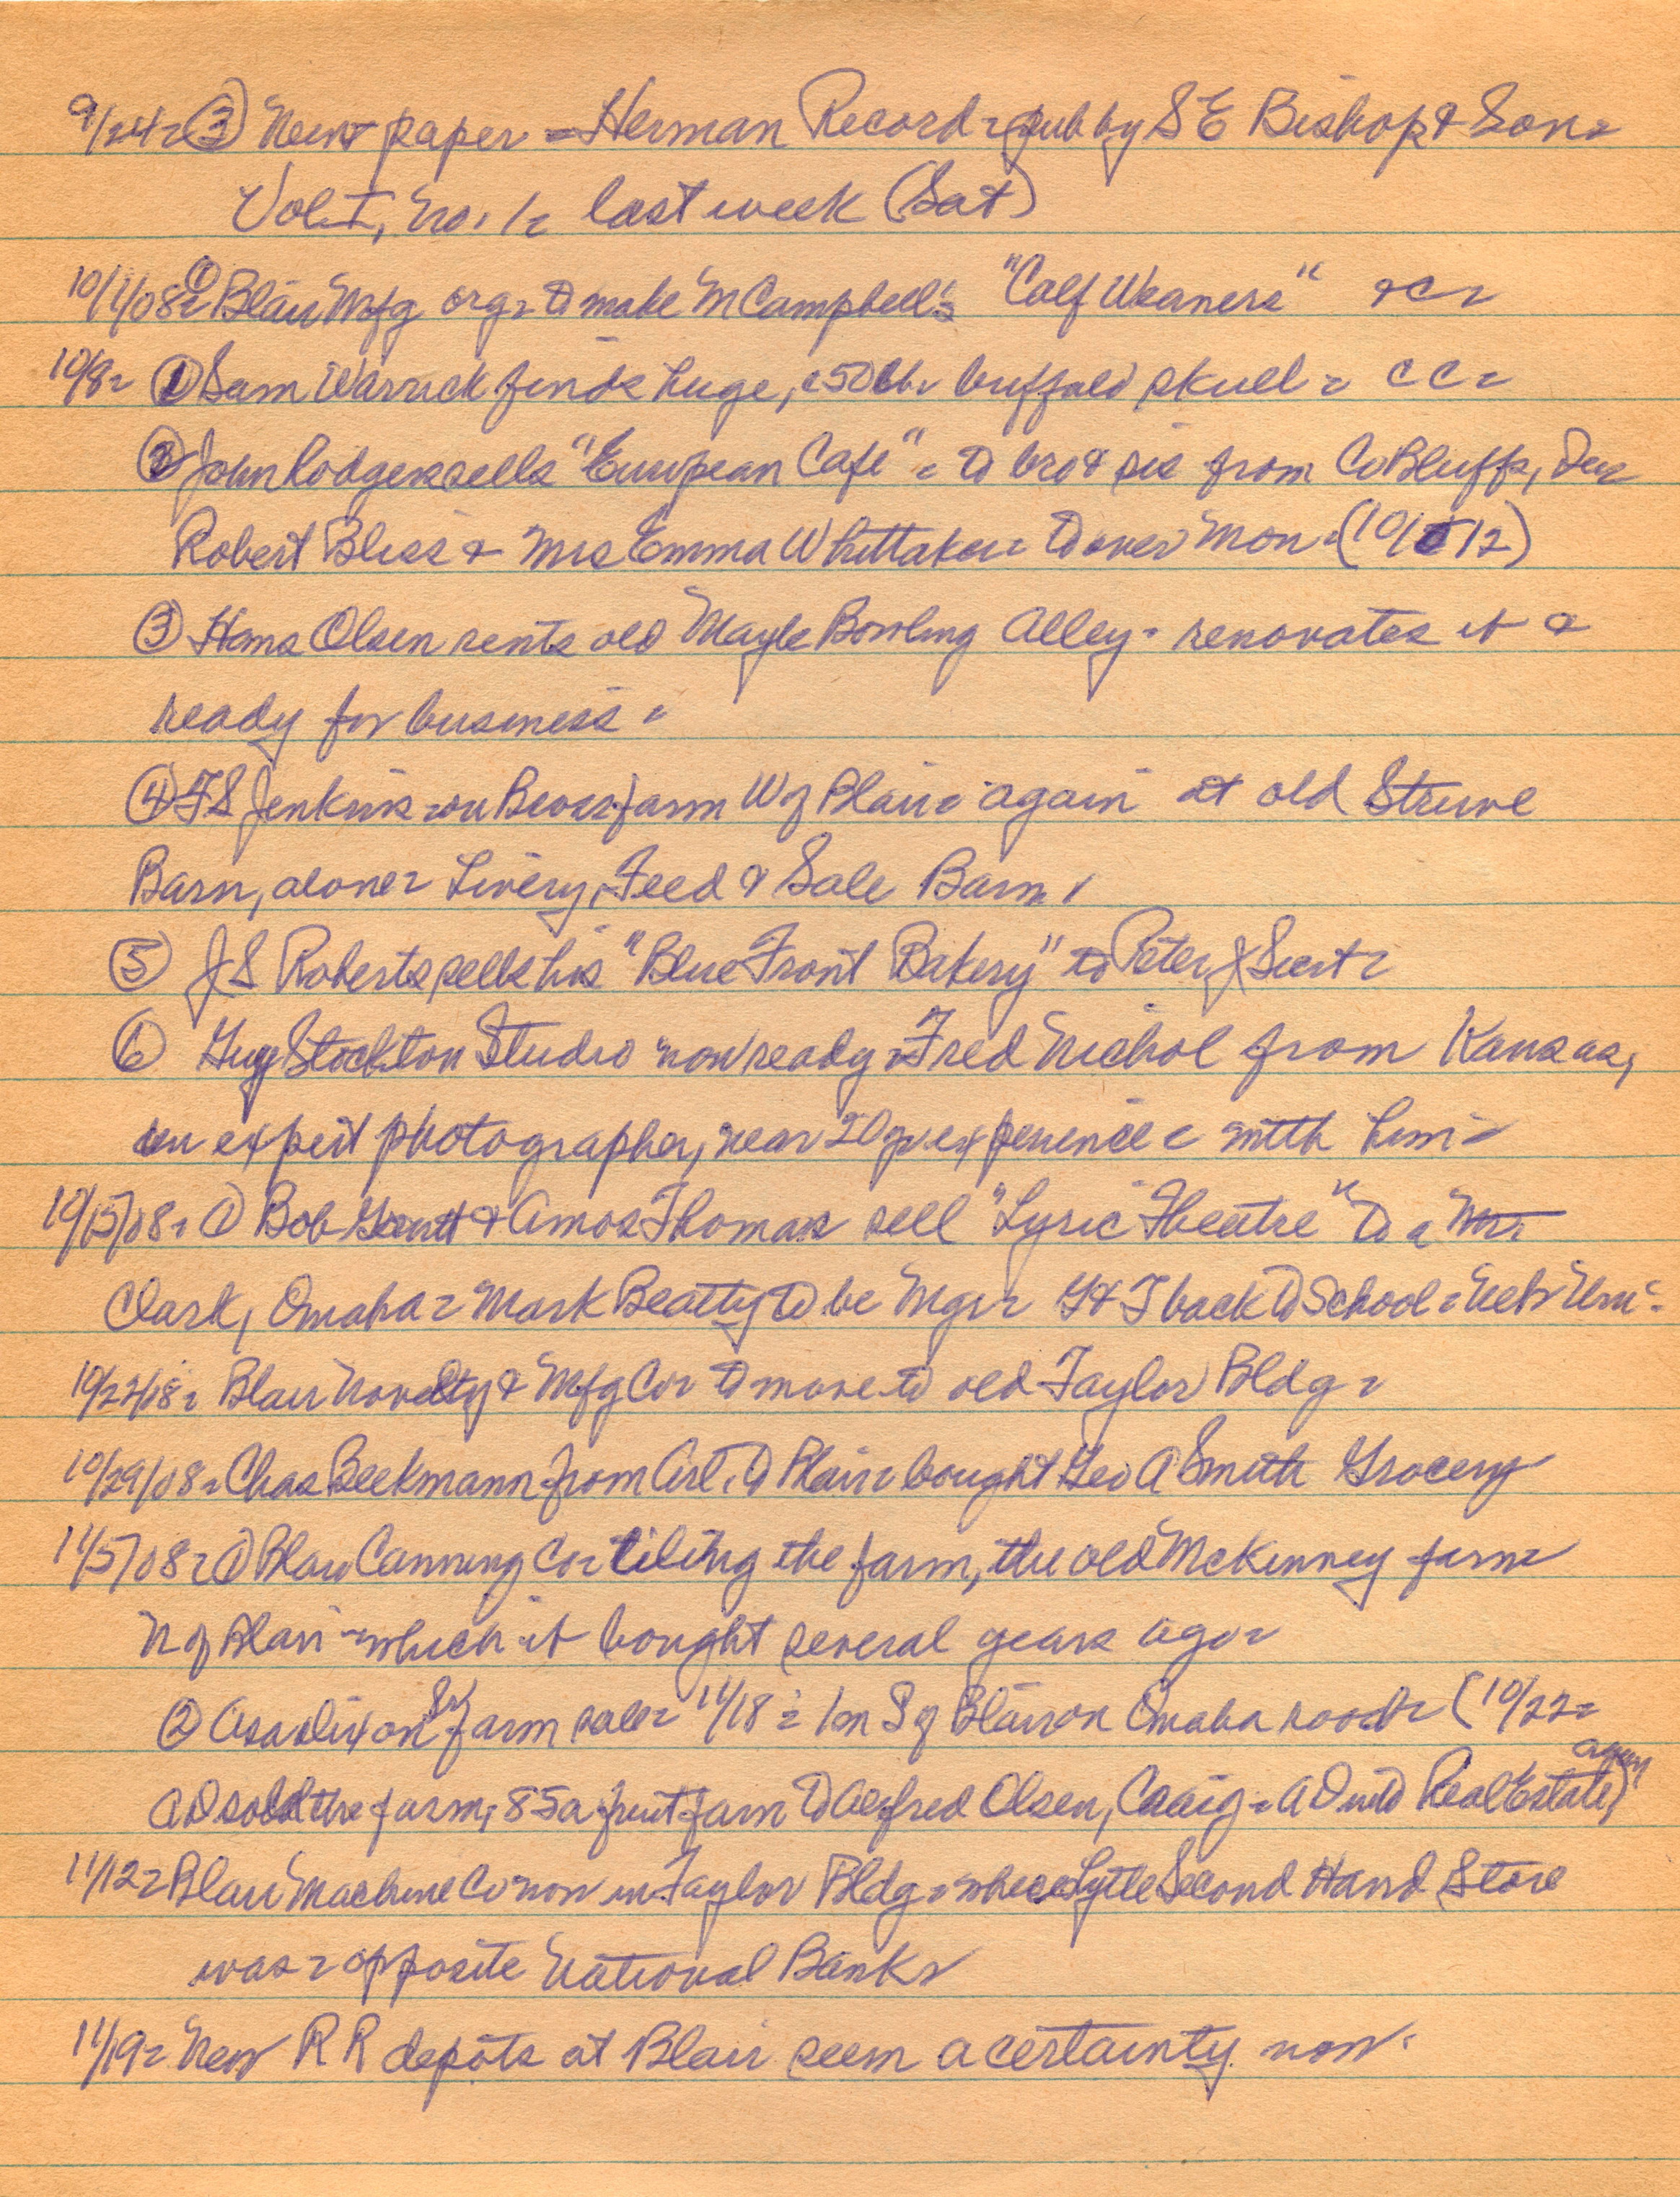 9/24 = ③ News paper = Herman Record = pub by S E Bishop & Son =
Vol I, No. 1 = last week (Sat)
10/1/08 = ① Blair Mfg org = to make M Campbell's "Calf Weaners" &c =
10/8 = ① Sam Warrick finds huge, c50 lb. buffalo skull = CC =
② John Rodgers sells "European Cafe" = to bro & sis from Co Bluffs,
Robert Bliss & Mrs Emma Whittaker = to over Mon = (10/12)
③ Hans Olsen rents old Mayle Bowling Alley = renovates it &
ready for business =
④ F S Jenkins = on farm W of Blair = again at old Struve
Barn, alone = Livery, Feed & Sale Barn.
⑤ J S Roberts sells his "Blue Front Bakery" to Peter J
⑥ Guy Stockton Studio now ready = Fred Nichol from Kansas,
an expert photographer, near 20 yr experience = with him =
10/15/08 = ① Bob & Amos Thomas sell "Lyric Theatre" to a Mr
Clark, Omaha = Mark Beatty to be Mgr = G & T back to School = Neb Uni =
10/22/08 = Blair Novelty & Mfg Co = to move to old Taylor Bldg =
10/29/08 = Chas Beekmann from Arl. to Blair = bought Geo A Smith Grocery
11/5/08 = ① Blair Canning Co = tiling the farm, the old McKinney farm =
N of Blair = which it bought several years ago =
② Asa Dixon Sr farm sale = 11/18 = 1 m S of Blair on Omaha road = (10/22 =
AD sold the farm, 85a fruit farm to Alfred Olsen, Craig = AD into Real Estate again)
11/12 = Blair Machine Co now in Taylor Bldg = where Lytle Second Hand Store
was = opposite National Bank =
11/19 = New R R depots at Blair seem a certainty now.